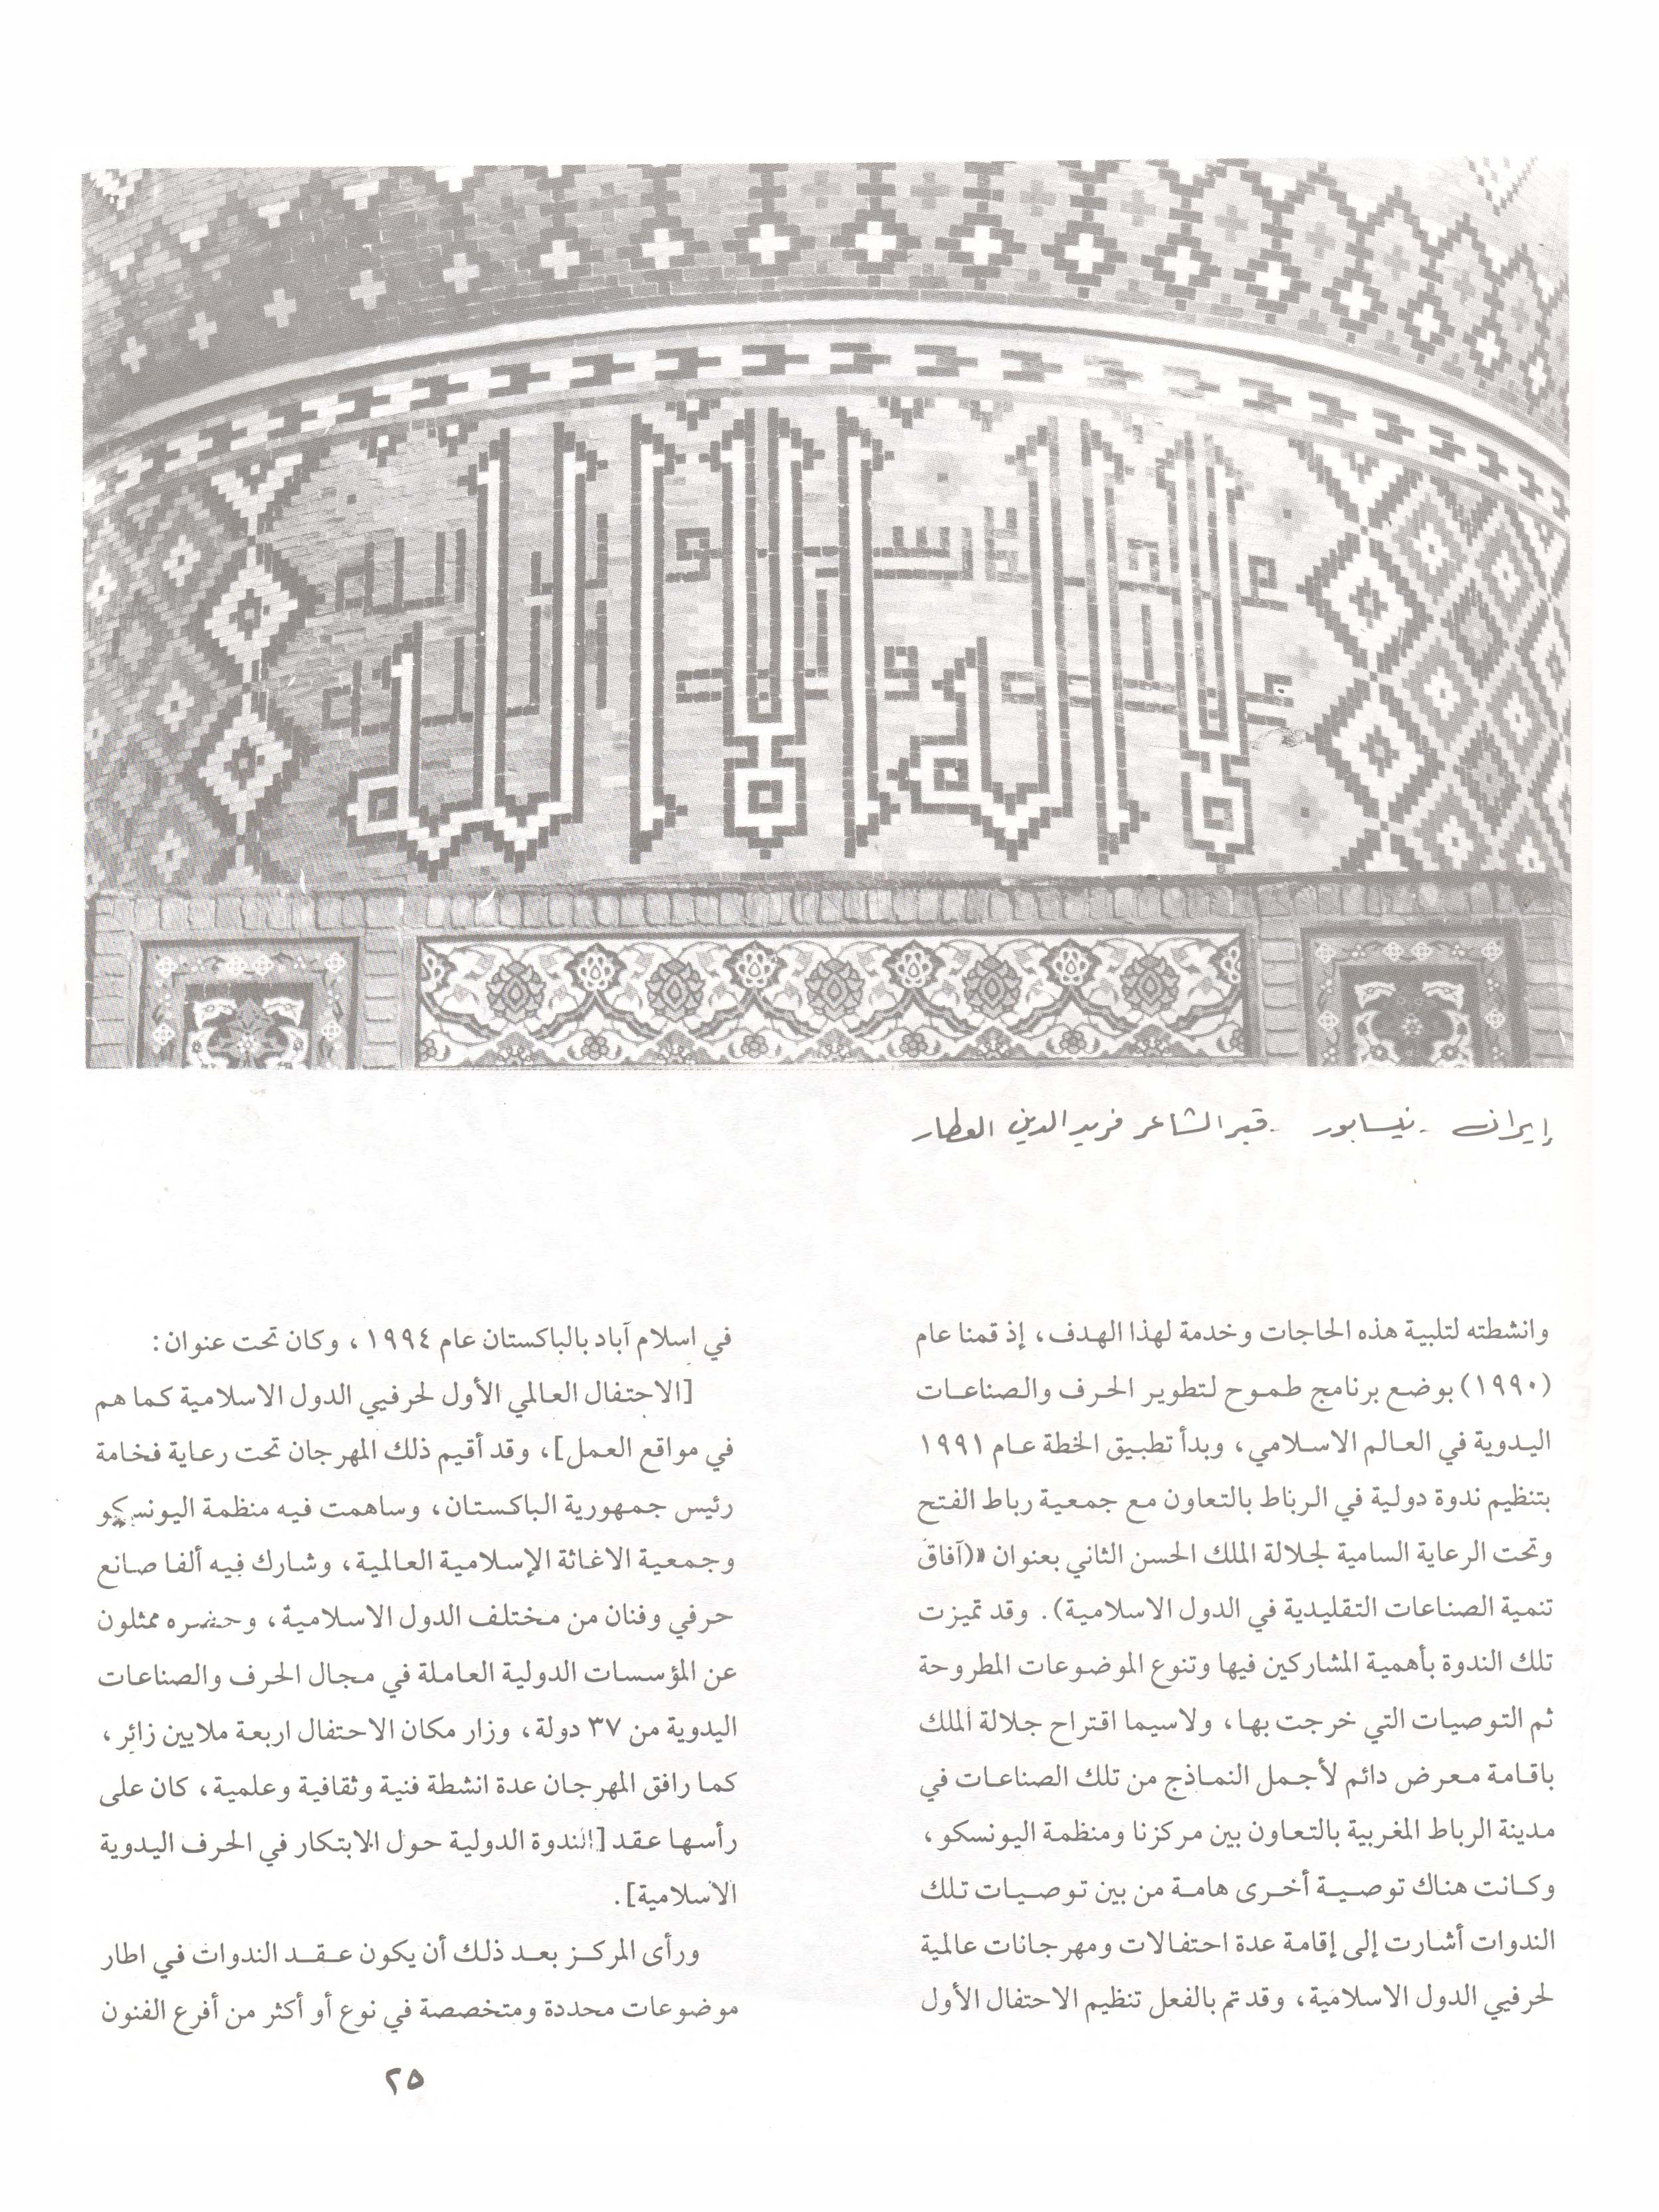 إيران - نيسابور - قبر الشاعر فريد الدين العطار
وانشطته لتلبية هذه الحاجات وخدمة لهذا الهدف، إذ قمنا عام
(١٩٩٠) بوضع برنامج طموح لتطوير الحرف والصناعات
اليدوية في العالم الاسلامي، وبدأ تطبيق الخطة عام ١٩٩١
بتنظيم ندوة دولية في الرباط بالتعاون مع جمعية رباط الفتح
وتحت الرعاية السامية لجلالة الملك الحسن الثاني بعنوان «(آفاق
تنمية الصناعات التقليدية في الدول الاسلامية). وقد تميزت
تلك الندوة بأهمية المشاركين فيها وتنوع الموضوعات المطروحة
ثم التوصيات التي خرجت بها، ولاسيما اقتراح جلالة الملك
باقامة معرض دائم لأجمل النماذج من تلك الصناعات في
مدينة الرباط المغربية بالتعاون بين مركزنا ومنظمة اليونسكو،
وكانت هناك توصية أخرى هامة من بين توصيات تلك
الندوات أشارت إلى إقامة عدة احتفالات ومهرجانات عالمية
لحرفيي الدول الاسلامية، وقد تم بالفعل تنظيم الاحتفال الأول
في اسلام آباد بالباكستان عام ١٩٩٤، وكان تحت عنوان:
[الاحتفال العالمي الأول لحرفيي الدول الاسلامية كما هم
في مواقع العمل]، وقد أقيم ذلك المهرجان تحت رعاية فخامة
رئيس جمهورية الباكستان، وساهمت فيه منظمة اليونسكو
وجمعية الاغاثة الإسلامية العالمية، وشارك فيه ألفا صانع
حرفي وفنان من مختلف الدول الاسلامية، وحضره ممثلون
عن المؤسسات الدولية العاملة في مجال الحرف والصناعات
اليدوية من ٣٧ دولة، وزار مكان الاحتفال اربعة ملايين زائر،
كما رافق المهرجان عدة انشطة فنية وثقافية وعلمية، كان على
رأسها عقد [الندوة الدولية حول الابتكار في الحرف اليدوية
الاسلامية].
ورأى المركز بعد ذلك أن يكون عقد الندوات في اطار
موضوعات محددة ومتخصصة في نوع أو أكثر من أفرع الفنون
٢٥